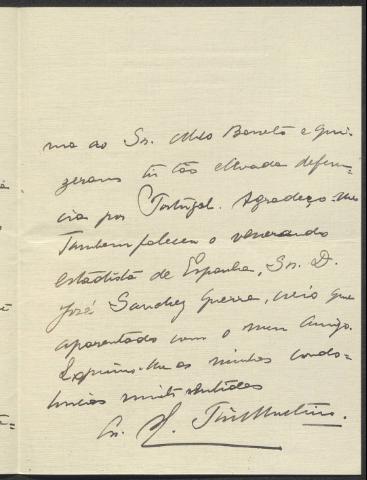 ma ao Sr. Melo Barreto e qui-
zeram ter tão elevada deferen-
cia por Portugal. Agradeço-lhe
Tambem faleceu o venerando
estadista de Espanha, Snr. D.
José Sanchez Guerra, creio que
aparentado com o meu Amigo.
Exprimo-lhe as minhas condo-
lencias muito sentidas